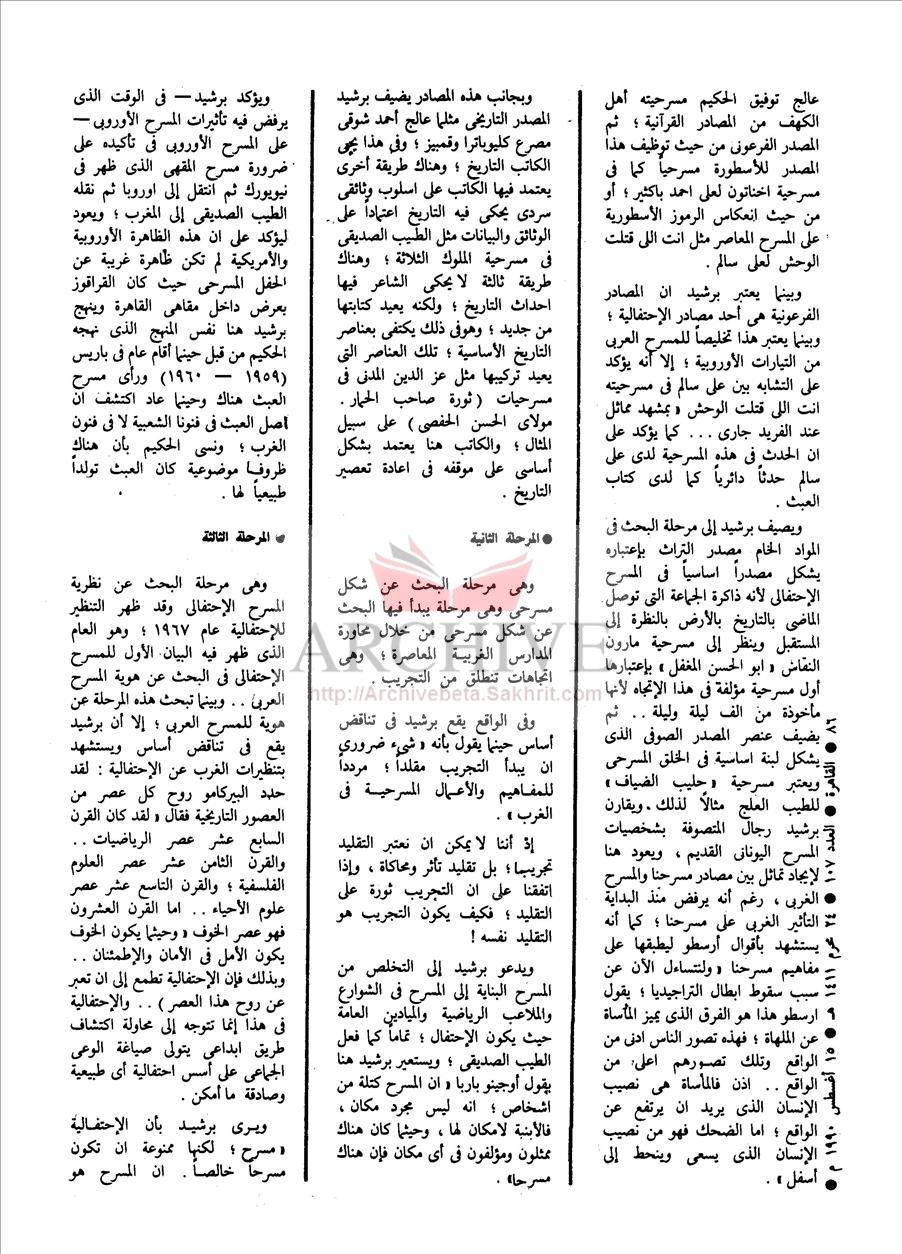 عالج توفيق الحكيم مسرحيته أهل
الكهف من المصادر القرآنية ؛ ثم
المصدر الفرعونى من حيث توظيف هذا
المصدر للأسطورة مسرحياً كما فى
مسرحية اخناتون لعلى احمد باكثير ؛ أو
من حيث انعكاس الرموز الأسطورية
على المسرح المعاصر مثل انت اللى قتلت
الوحش لعلى سالم .
وبينما يعتبر برشيد ان المصادر
الفرعونية هى أحد مصادر الإحتفالية ؛
وبينما يعتبر هذا تخليصاً للمسرح العربى
من التيارات الأوروبية ؛ إلا أنه يؤكد
على التشابه بين على سالم فى مسرحيته
انت اللى قتلت الوحش « بمشهد مماثل
عند الفريد جارى ... كما يؤكد على
ان الحدث فى هذه المسرحية لدى على
سالم حدثاً دائرياً كما لدى كتاب
العبث .
ويصيف برشيد إلى مرحلة البحث فى
المواد الخام مصدر التراث بإعتباره
يشكل مصدراً اساسياً فى المسرح
الإحتفالى لأنه ذاكرة الجماعة التى توصل
الماضى بالتاريخ بالأرض بالنظرة إلى
المستقبل وينظر إلى مسرحية مارون
النقاش « ابو الحسن المغفل » بإعتبارها
أول مسرحية مؤلفة فى هذا الإتجاه لأنها
مأخوذة من الف ليلة وليلة .. ثم
يضيف عنصر المصدر الصوفى الذى
يشكل لبنة اساسية فى الخلق المسرحى
ويعتبر مسرحية « حليب الضياف »
للطيب العلج مثالاً لذلك . ويقارن
برشيد رجال المتصوفة بشخصيات
المسرح اليونانى القديم ، ويعود هنا
لإيجاد تماثل بين مصادر مسرحنا والمسرح
الغربى ، رغم أنه يرفض منذ البداية
التأثير الغربى على مسرحنا ؛ كما أنه
يستشهد بأقوال أرسطو ليطبقها على
مفاهيم مسرحنا « ولنتساءل الآن عن
سبب سقوط ابطال التراجيديا ؛ يقول
ارسطو هذا هو الفرق الذى يميز المأساة
عن الملهاة ؛ فهذه تصور الناس ادنى من
الواقع وتلك تصورهم اعلى من
الواقع .. اذن فالمأساة هى نصيب
الإنسان الذى يريد ان يرتفع عن
الواقع ؛ اما الضحك فهو من نصيب
الإنسان الذى يسعى وينحط إلى
أسفل » .
وبجانب هذه المصادر يضيف برشيد
المصدر التاريخى مثلما عالج أحمد شوقى
مصرع كليوباترا وقمبيز ؛ وفى هذا يحكى
الكاتب التاريخ ؛ وهناك طريقة أخرى
يعتمد فيها الكاتب على اسلوب وثائقى
سردى يحكى فيه التاريخ اعتماداً على
الوثائق والبيانات مثل الطيب الصديقى
فى مسرحية الملوك الثلاثة ؛ وهناك
طريقة ثالثة لا يحكى الشاعر فيها
احداث التاريخ ؛ ولكنه يعيد كتابتها
من جديد ؛ وهو فى ذلك يكتفى بعناصر
التاريخ الأساسية ؛ تلك العناصر التى
يعيد تركيبها مثل عز الدين المدنى فى
مسرحيات ( ثورة صاحب الحمار .
مولاى الحسن الحفصى ) على سبيل
المثال ؛ والكاتب هنا يعتمد بشكل
أساسى على موقفه فى اعادة تعصير
التاريخ .
● المرحلة الثانية
وهى مرحلة البحث عن شكل
مسرحى وهى مرحلة يبدأ فيها البحث
عن شكل مسرحى من خلال محاورة
المدارس الغربية المعاصرة ؛ وهى
اتجاهات تنطلق من التجريب .
وفى الواقع يقع برشيد فى تناقض
أساس حينما يقول بأنه « شىء ضرورى
ان يبدأ التجريب مقلداً ؛ مردداً
للمفاهيم والأعمال المسرحية فى
الغرب » .
إذ أننا لا يمكن ان نعتبر التقليد
تجريباً ؛ بل تقليد تأثر ومحاكاة ، وإذا
إتفقنا على ان التجريب ثورة على
التقليد ؛ فكيف يكون التجريب هو
التقليد نفسه !
ويدعو برشيد إلى التخلص من
المسرح البناية إلى المسرح فى الشوارع
والملاعب الرياضية والميادين العامة
حيث يكون الإحتفال ؛ تماماً كما فعل
الطيب الصديقى ؛ ويستعير برشيد هنا
يقول أوجينو باربا « ان المسرح كتلة من
اشخاص ؛ انه ليس مجرد مكان ،
فالأبنية لامكان لها ، وحيثما كان هناك
ممثلون ومؤلفون فى أى مكان فإن هناك
مسرحاً» .
ويؤكد برشيد — فى الوقت الذى
يرفض فيه تأثيرات المسرح الأوروبى —
على المسرح الأوروبى فى تأكيده على
ضرورة مسرح المقهى الذى ظهر فى
نيويورك ثم انتقل إلى اوروبا ثم نقله
الطيب الصديقى إلى المغرب ؛ ويعود
ليؤكد على ان هذه الظاهرة الأوروبية
والأمريكية لم تكن ظاهرة غريبة عن
الحفل المسرحى حيث كان القراقوز
يعرض داخل مقاهى القاهرة وينهج
برشيد هنا نفس المنهج الذى نهجه
الحكيم من قبل حينما أقام عام فى باريس
(١٩٥٩ — ١٩٦٠) ورأى مسرح
العبث هناك وحينما عاد اكتشف ان
اصل العبث فى فنونا الشعبية لا فى فنون
الغرب ؛ ونسى الحكيم بأن هناك
ظروفا موضوعية كان العبث تولداً
طبيعياً لها .
● المرحلة الثالثة
وهى مرحلة البحث عن نظرية
المسرح الإحتفالى وقد ظهر التنظير
للإحتفالية عام ١٩٦٧ ؛ وهو العام
الذى ظهر فيه البيان الأول للمسرح
الإحتفالى فى البحث عن هوية المسرح
العربى .. وبينما تبحث هذه المرحلة عن
هوية للمسرح العربى ؛ إلا أن برشيد
يقع فى تناقض أساس ويستشهد
بتنظيرات الغرب عن الإحتفالية : لقد
حدد البيركامو روح كل عصر من
العصور التاريخية فقال « لقد كان القرن
السابع عشر عصر الرياضيات ..
والقرن الثامن عشر عصر العلوم
الفلسفية ؛ والقرن التاسع عشر عصر
علوم الأحياء .. اما القرن العشرون
فهو عصر الخوف « وحيثما يكون الخوف
يكون الأمل فى الأمان والإطمئنان ..
وبذلك فإن الإحتفالية تطمع إلى ان تعبر
عن روح هذا العصر ) .. والإحتفالية
فى هذا إنما تتوجه إلى محاولة اكتشاف
طريق ابداعى يتولى صياغة الوعى
الجماعى على أسس احتفالية أى طبيعية
وصادقة ما أمكن .
ويرى برشيد بأن الإحتفالية
«مسرح ؛ لكنها ممنوعة ان تكون
مسرحاً خالصاً . ان المسرح هو
٨٦ ● القاهرة ● العدد ١٠٧ ● ٢٤ محرم ١٤١١ هـ ● ١٥ أغسطس ١٩٩٠ م ●
ARCHIVE
http://Archivebeta.Sakhrit.com